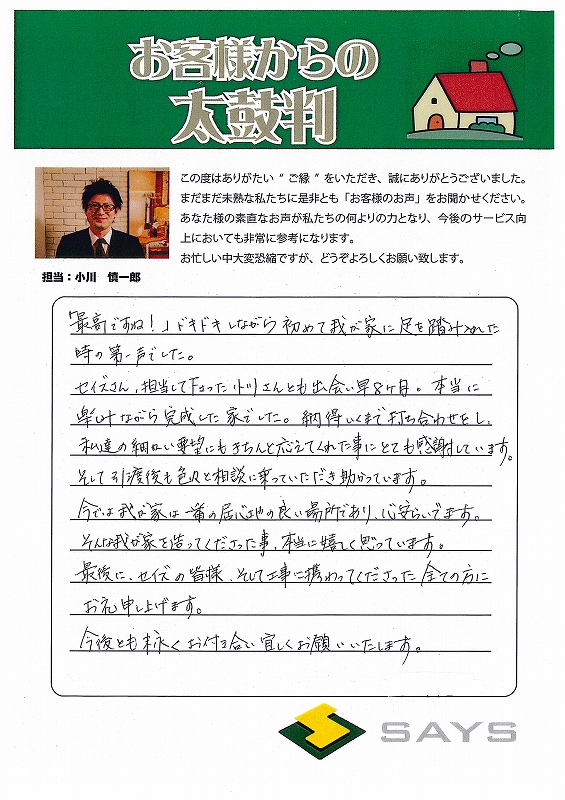 お客様からの
太鼓判
この度はありがたい“ご縁”をいただき、誠にありがとうございました。
まだまだ未熟な私たちに是非とも「お客様のお声」をお聞かせください。
あなた様の素直なお声が私たちの何よりの力となり、今後のサービス向
上においても非常に参考になります。
お忙しい中大変恐縮ですが、どうぞよろしくお願い致します。
担当：小川 慎一郎
「最高ですね！」ドキドキしながら初めて我が家に足を踏み入れた
時の第一声でした。
セイズさん、担当して下さった小川さんとも出会い早8ヶ月。本当に
楽しみながら完成した家でした。納得いくまで打ち合わせをし、
私達の細かい要望にもきちんと応えてくれた事にとても感謝しています。
そして引渡後も色々と相談に乗っていただき助かっています。
今では我が家は一番の居心地の良い場所であり、心安らいでます。
そんな我が家を造ってくださった事、本当に嬉しく思っています。
最後に、セイズの皆様、そして工事に携わってくださった全ての方に
お礼申し上げます。
今後とも末永くお付き合い宜しくお願いいたします。
SAYS